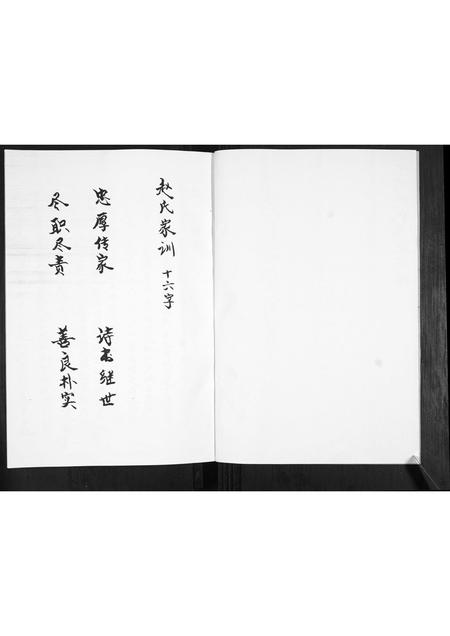 赵氏家训 十六字
忠厚传家 诗书继世
尽职尽责 善良朴实